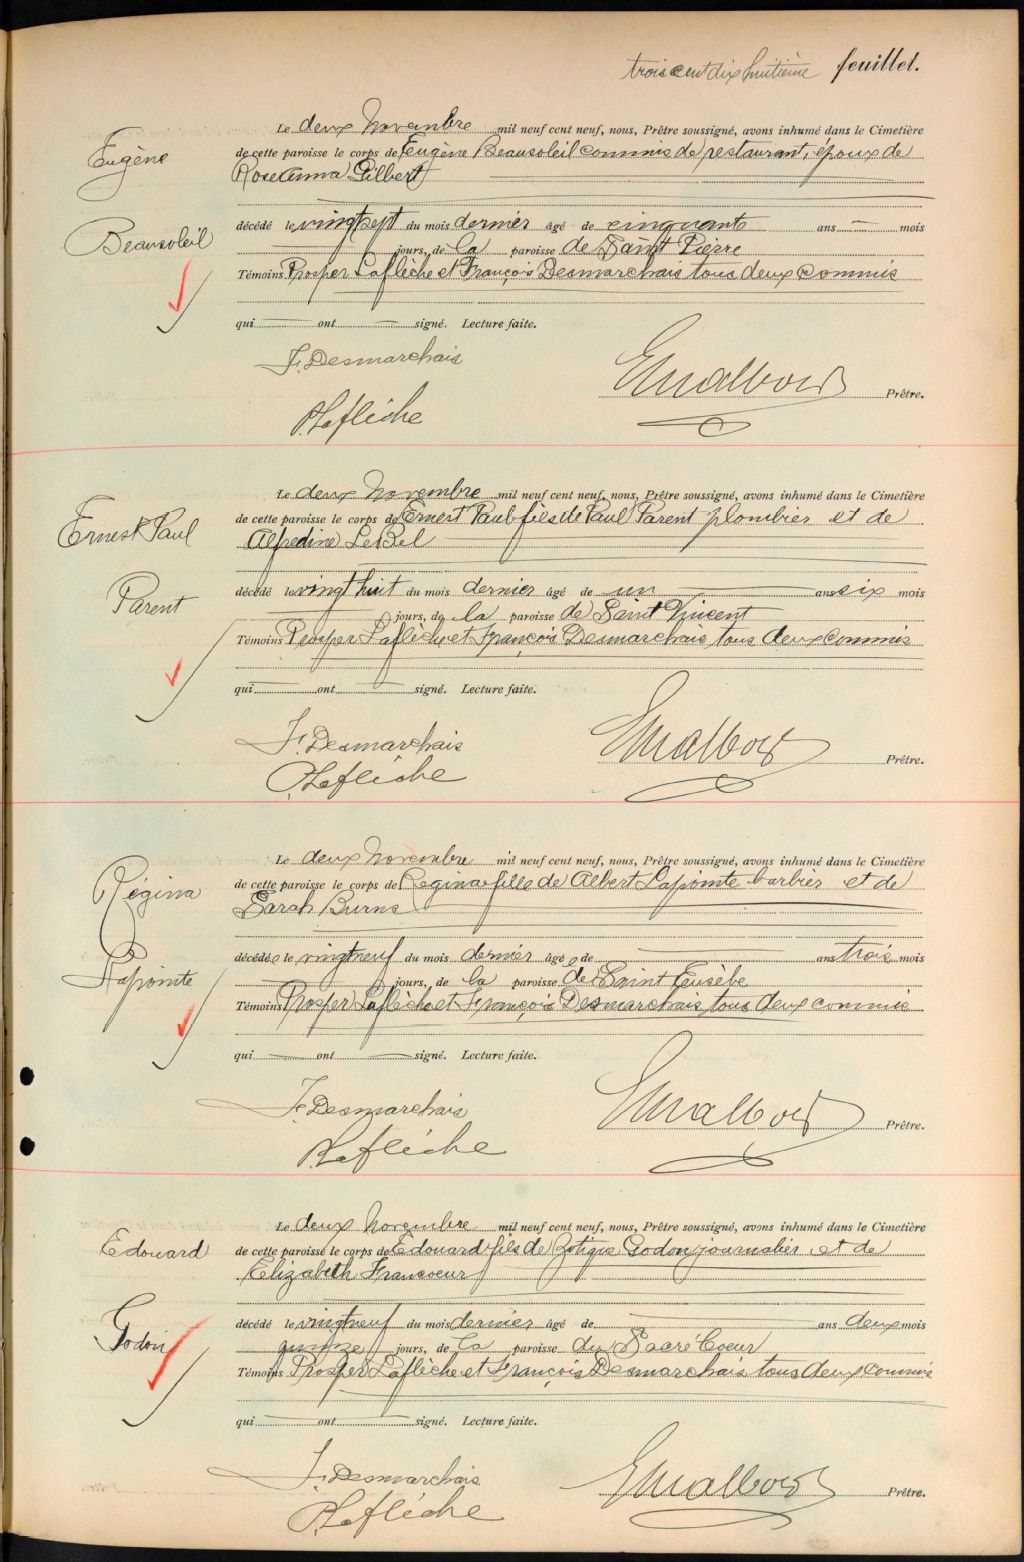 trois cent dix huitième feuillet.
Eugène
Beausoleil
Le deux Novembre mil neuf cent neuf, nous, Prêtre soussigné, avons inhumé dans le Cimetière
de cette paroisse le corps de Eugène Beausoleil commis de restaurant, époux de
Rose Anna Gilbert
décédé le vingt sept du mois dernier âgé de cinquante ans mois
jours, de la paroisse de Saint Pierre
Témoins Prosper Laflèche et François Desmarchais tous deux commis
qui ont signé. Lecture faite.
F. Desmarchais
P. Laflèche
Prêtre.
Ernest Paul
Parent
Le deux Novembre mil neuf cent neuf, nous, Prêtre soussigné, avons inhumé dans le Cimetière
de cette paroisse le corps de Ernest Paul fils de Paul Parent plombier et de
Alfredine LeBel
décédé le vingt huit du mois dernier âgé de un ans six mois
jours, de la paroisse de Saint Vincent
Témoins Prosper Laflèche et François Desmarchais tous deux commis
qui ont signé. Lecture faite.
F. Desmarchais
P. Laflèche
Prêtre.
Régina
Lapointe
Le deux Novembre mil neuf cent neuf, nous, Prêtre soussigné, avons inhumé dans le Cimetière
de cette paroisse le corps de Regina fille de Albert Lapointe barbier et de
Sarah Burns
décédée le vingt neuf du mois dernier âgée de ans trois mois
jours, de la paroisse de Saint Eusèbe
Témoins Prosper Laflèche et François Desmarchais tous deux commis
qui ont signé. Lecture faite.
F. Desmarchais
P. Laflèche
Prêtre.
Edouard
Godon
Le deux Novembre mil neuf cent neuf, nous, Prêtre soussigné, avons inhumé dans le Cimetière
de cette paroisse le corps de Edouard fils de Zotique Godon journalier et de
Elizabeth Francoeur
décédé le vingt neuf du mois dernier âgé de ans deux mois
quinze jours, de la paroisse du Sacré Coeur
Témoins Prosper Laflèche et François Desmarchais tous deux commis
qui ont signé. Lecture faite.
F. Desmarchais
P. Laflèche
Prêtre.